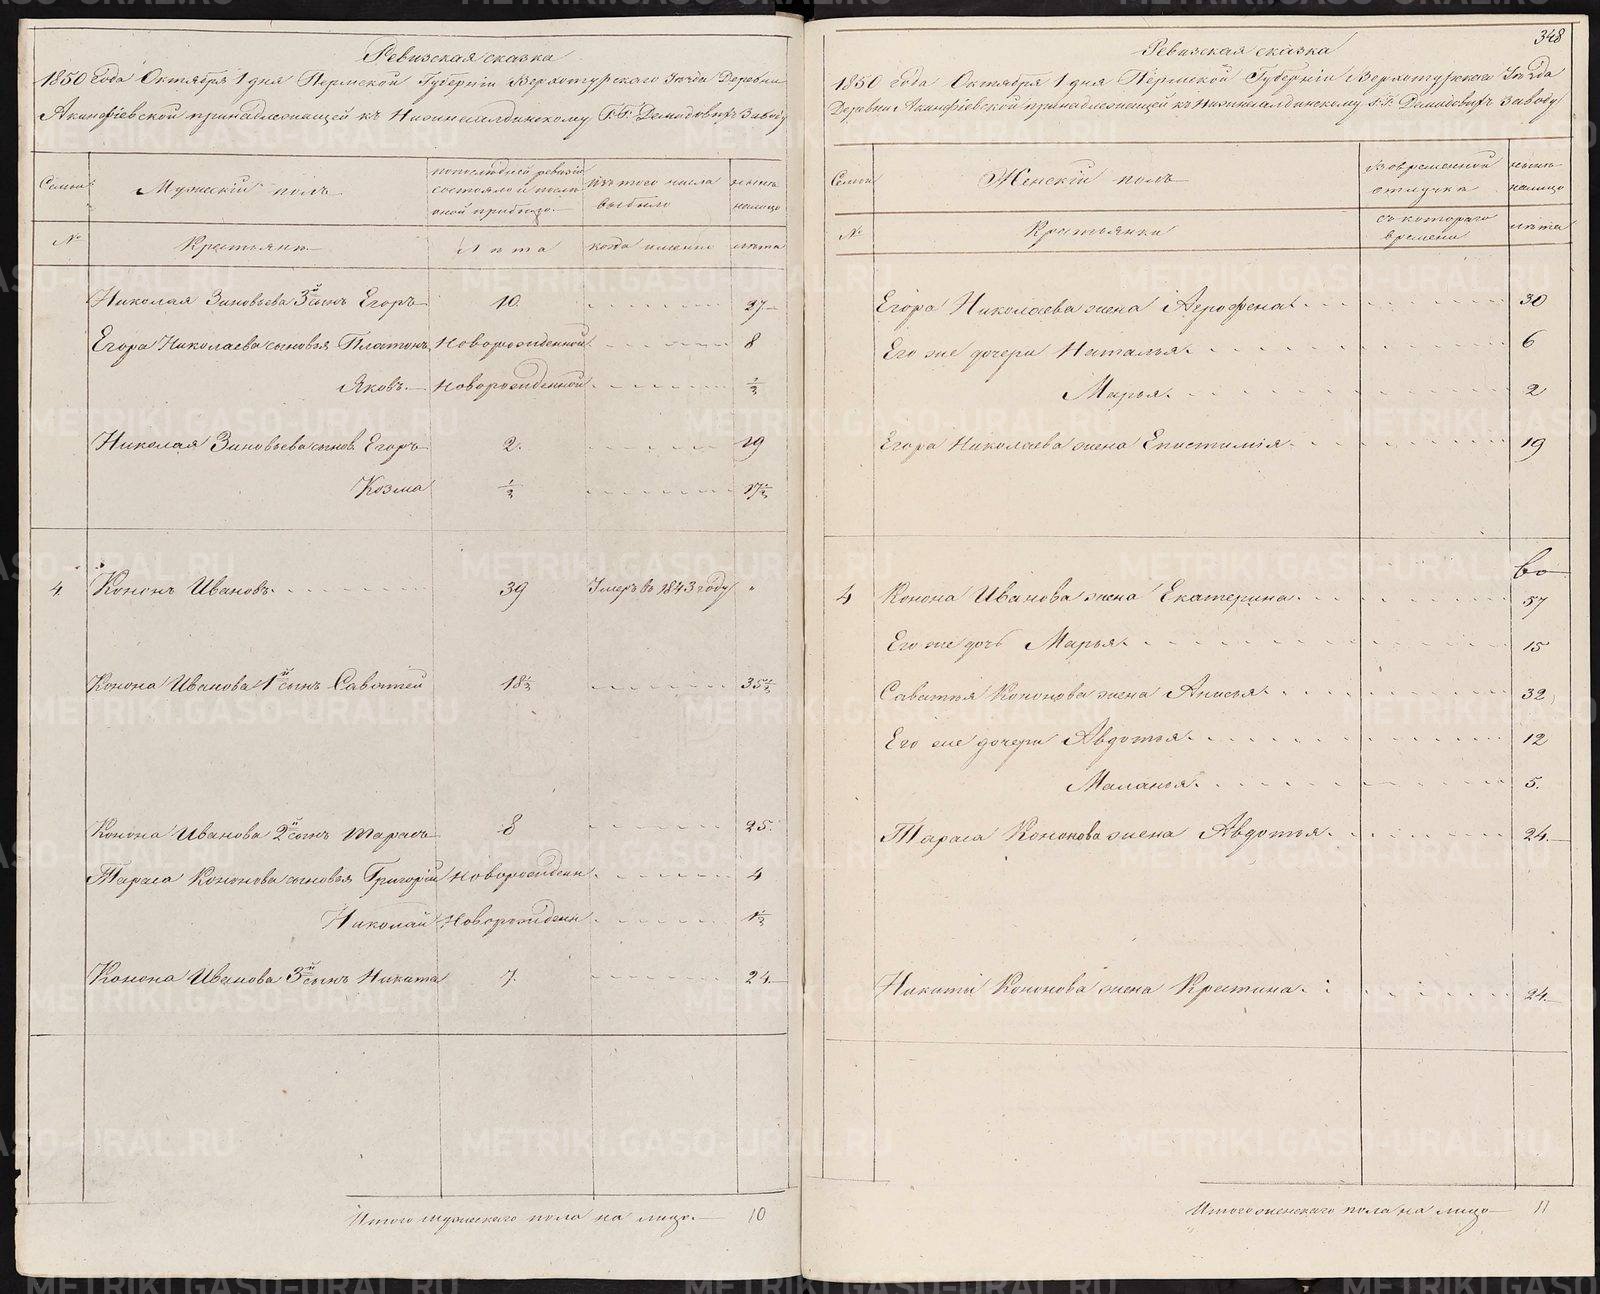 Ревизская сказка
1850 года Октября 1 дня Пермской Губерніи Верхотурского Уѣзда Деревни
Акинфіевской принадлежащей къ Нижнесалдинскому Г.Г. Демидовыхъ Заводу
Семьи
Мужескій полъ
по последней ревизіи состояло и после оной прибыло
Изъ того числа выбыло
нынѣ на лицо
№
Крестьяне
Лѣта
когда именно
лѣта
Николая Зиновьева 3й сынъ Егоръ 10. 27
Егора Николаева сыновья Платонъ Новорожденной 8
Яковъ Новорожденной 1/2
Николая Зиновьева сынов. Егоръ 2. 19
Козма 1/2 17 1/2
4. Кононъ Ивановъ 39 Умеръ въ 1843 году "
Конона Иванова 1й сынъ Саватей 18 1/2 35 1/2
Конона Иванова 2й сынъ Тарасъ 8 25.
Тараса Кононова сыновья Григорій Новорожден. 4
Николай Новорожден 1 1/2
Конона Иванова 3й сынъ Никита 7. 24
Итого мужескаго пола на лицо 10
348
Ревизская сказка
1850 года Октября 1 дня Пермской Губерніи Верхотурского Уѣзда
Деревни Акинфіевской принадлежащей къ Нижнесалдинскому Г.Г. Демидовыхъ Заводу
Семьи
Женскій полъ
Во временной отлучке
нынѣ на лицо
№
Крестьянки
съ котораго времени
лѣта
Егора Николаева жена Агрофена 30
Его же дочери Наталья 6
Марья 2
Егора Николаева жена Епистимія 19
4 Конона Иванова жена Екатерина 57
Его же дочь Марья 15
Саватья Кононова жена Анисья 32
Его же дочери Авдотья 12
Маланья 5.
Тараса Кононова жена Авдотья 24
Никиты Кононова жена Крестина 24
Итого женскаго пола на лицо 11
METRIKI.GASO-URAL.RU